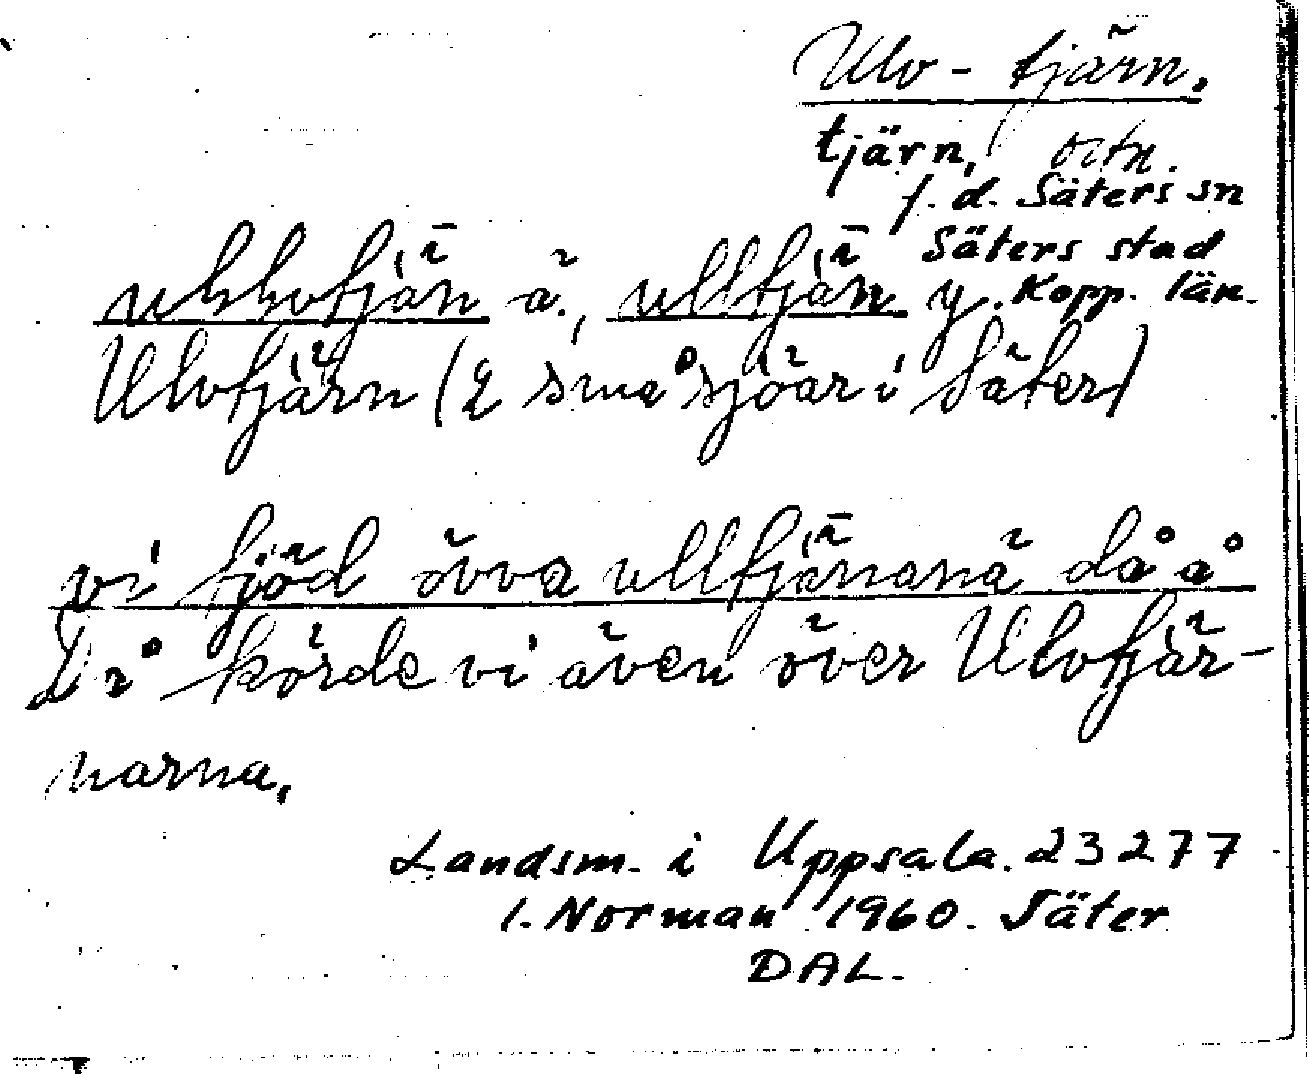 Ulv - tjärn.
tjärn, ortn.
f. d. Säters sn
Säters stad
Kopp. län.
ulltjän y.
Ulvtjärn (2 små sjöar i Säter)
vi tjöd övva ulltjänana då å
Då körde vi även över Ulvtjär-
narna.
Landsm. i Uppsala. 23277
I. Norman 1960. Säter
DAL.